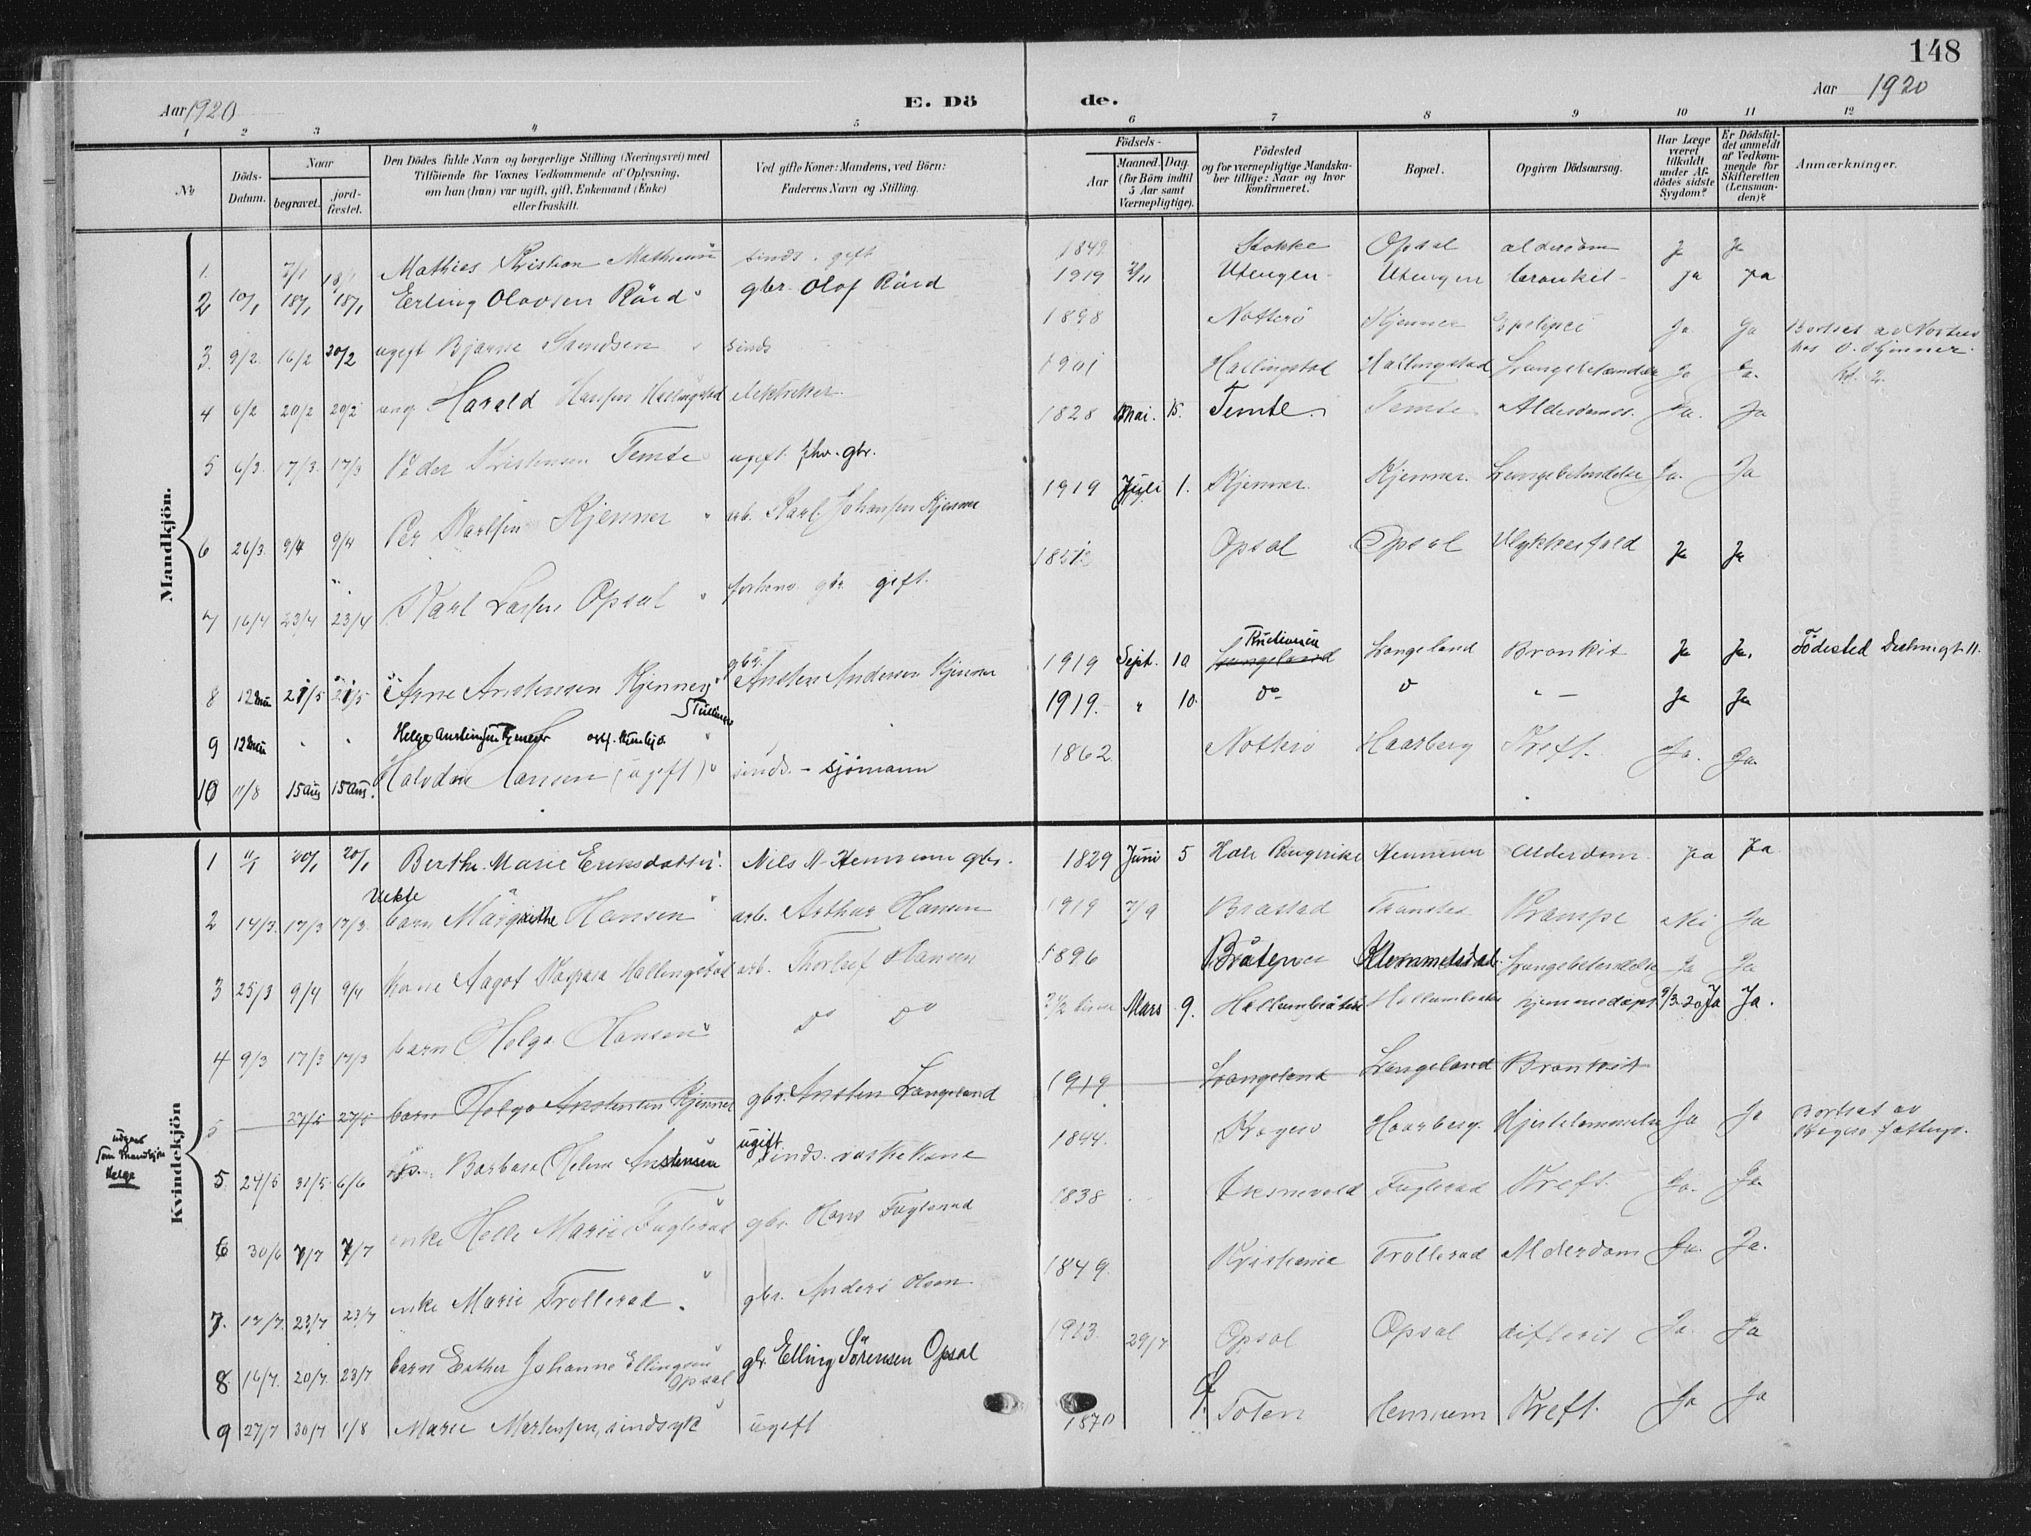 148
Aar 1920
E. Dö
de.
Aar 1920
1 2 3 4 5 6 7 8 9 10 11 12
No
Döds-Datum.
Naar
begravet.
jord-fæstet.
Den Dödes fulde Navn og borgerlige Stilling (Næringsvei) med
Tilföiende for Voxnes Vedkommende af Oplysning,
om han (hun) var ugift, gift, Enkemand (Enke)
eller fraskilt.
Ved gifte Koner: Mandens, ved Börn:
Faderens Navn og Stilling.
Födsels-
Aar
Maaned. Dag.
(for Börn indtil
5 Aar samt
Værnepligtige).
Födested
og for værnepligtige Mandska-
ber tillige: Naar og hvor
konfirmeret.
Bopæl.
Opgiven Dödsaarsag.
Har Læge
været
tilkaldt
under Af-
dödes sidste
Sygdom?
Er Dödsfal-
det anmeldt
af Vedkom-
mende for
Skifteretten
(Lensman-
den)?
Anmærkninger.
Mandkjön.
1. 7/1 18/1 Mathies Kristian sinds. gift 1849 Stokke Opsal alderdom Ja Ja
2 10/1 18/1 18/1 Erling Olavsen Röed gbr. Olaf Röed 1919 2/11 Utengen Utengen bronkit Ja Ja
3. 9/2 16/2 20/2 ugift Bjarne sinds 1898 Notterö Kjenner Ja Ja Bortsat av
hos O. Kjenner.
4 6/2 20/2 20/2 ung. Harald Hansen Hallingstad elektriker 1901 Hallingstad Hallingstad Lungebetændelse Ja Ja.
5 6/3 17/3 17/3 Peder Kristensen Temte ugift fhv. gbr. 1828 Mai. 15. Temte Temte Alderdoms. Ja. Ja
6 26/3 9/4 9/4 Per Karlsen Kjenner arb. Karl Johansen Kjenner 1919 Juli 1. Kjenner. Kjenner. Lungebetendelse Ja. Ja
7 16/4 23/4 23/4 Karl Larsen Opsal forhenv gbr gift. Opsal Opsal Ulykkesfald Ja Ja
8 12 mai 21/5 21/5 Arne Anstensen Kjenner gbr. Ansten Andersen Kjenner 1919 Sept. 10 Langeland Langeland Bronkit Ja Ja. Födested
9 12 mai " " Helge 1919. " 10. do do " — Ja Ja
10 11/8 15 aug 15 aug. Halvdan Hansen (ugift) sinds. - sjömann 1862 Notterö Haarberg Kreft. Ja. Ja.
Kvindekjön
1 11/1 20/1 20/1 Berthe Marie Eriksdatter. Nils N. Hennum gbr. 1829 Juni 5 Hole Ringerike Hennum Alderdom Ja Ja
2 14/3 17/3 17/3 barn Margrethe Hansen arb. Arthur Hansen 1919 7/9 Brastad Krampe Nei Ja
3 25/3 9/4 9/4 kone Aagot Hallingstad arb. Thorleif Hansen 1896 Bråtenes Lungebetendelse Ja Ja
4 9/3 17/3 17/3 barn Helga Hansen do do Mars 9. 9/3 20 Ja Ja.
5 27/5 27/5 barn Helga Anstensen Kjenner gbr. Ansten Langeland 1919 Langeland Langeland Bronkit
udgaar
som Mandkjön
Helge
5. 24/5 31/5 6/6 Barbara Helene Anstensen ugift sinds. vaskekone 1844. Kragerö Haarberg. Hjertelammelse Ja Ja Bortsat av
6 30/6 7/7 7/7 enke Helle Marie Fuglerud gbr. Hans Fuglerud 1838 Fuglerud Kreft. Ja. Ja.
7. 17/7. 23/7 23/7 enke Marie Trollerud. gbr. Anders Olsen 1849. Kristiania Trollerud Alderdom Ja. Ja.
8. 16/7. 20/7. 23/7 barn Esther Johanne Ellingsen
Opsal gbr. Elling Sörensen Opsal 1913. 29/7 Opsal Opsal difterit Ja. Ja
9 27/7 30/7 1/8 Marie Mortensen, sindsyk ugift 1870 Toten Hennum Kreft. Ja Ja